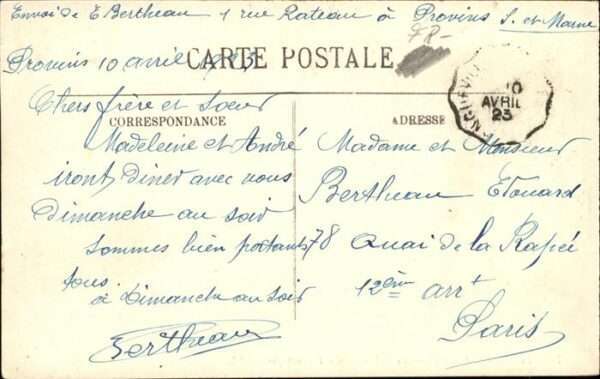 Envoi de E Bertheau 1 rue Rateau à Provins S. et Marne
FR-
CARTE POSTALE
Provins 10 avril 1923
Chers frère et soeur
CORRESPONDANCE
ADRESSE
Madeleine et André
iront diner avec vous
Dimanche au soir
sommes bien portants
tous.
à Dimanche au soir
Bertheau
Madame et Monsieur
Bertheau Edouard
78 Quai de la Rapée
12ème arrt
Paris
10
AVRIL
23